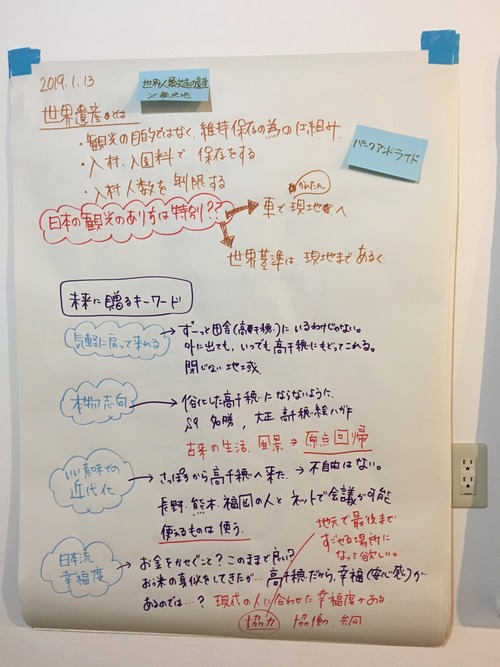 2019.1.13
世界遺産とは…
・観光の目的ではなく、維持保存の為の仕組み
・入村、入園料で、保存をする
・入村人数を制限する
パークアンドライド
日本の観光のあり方は特別??
かんたん
車で現地へ
世界基準は、現地まであるく。
未来に贈るキーワード
気軽に戻って来れる
ずーっと田舎(高千穂)にいるわけじゃない。
外に出ても、いつでも高千穂にもどってこれる。
閉じない地域
本物志向
俗化した高千穂にならないように。
名勝、大正 高千穂絵ハガキ
古来の生活、風景 → 原点回帰
いい意味での近代化
さっぽろから高千穂へ来た → 不自由はない。
長野、熊本、福岡の人とネットで会議が可能
使えるものは使う。
地元で最後まで
すごせる場所に
なって欲しい。
日本流
幸福度
お金をかせぐこと?このままで良い?
の真似をしてきたが…高千穂だから、幸福(安心感)が
あるのでは…?現代の人に合わせた幸福度がある。
協力 協働、共同